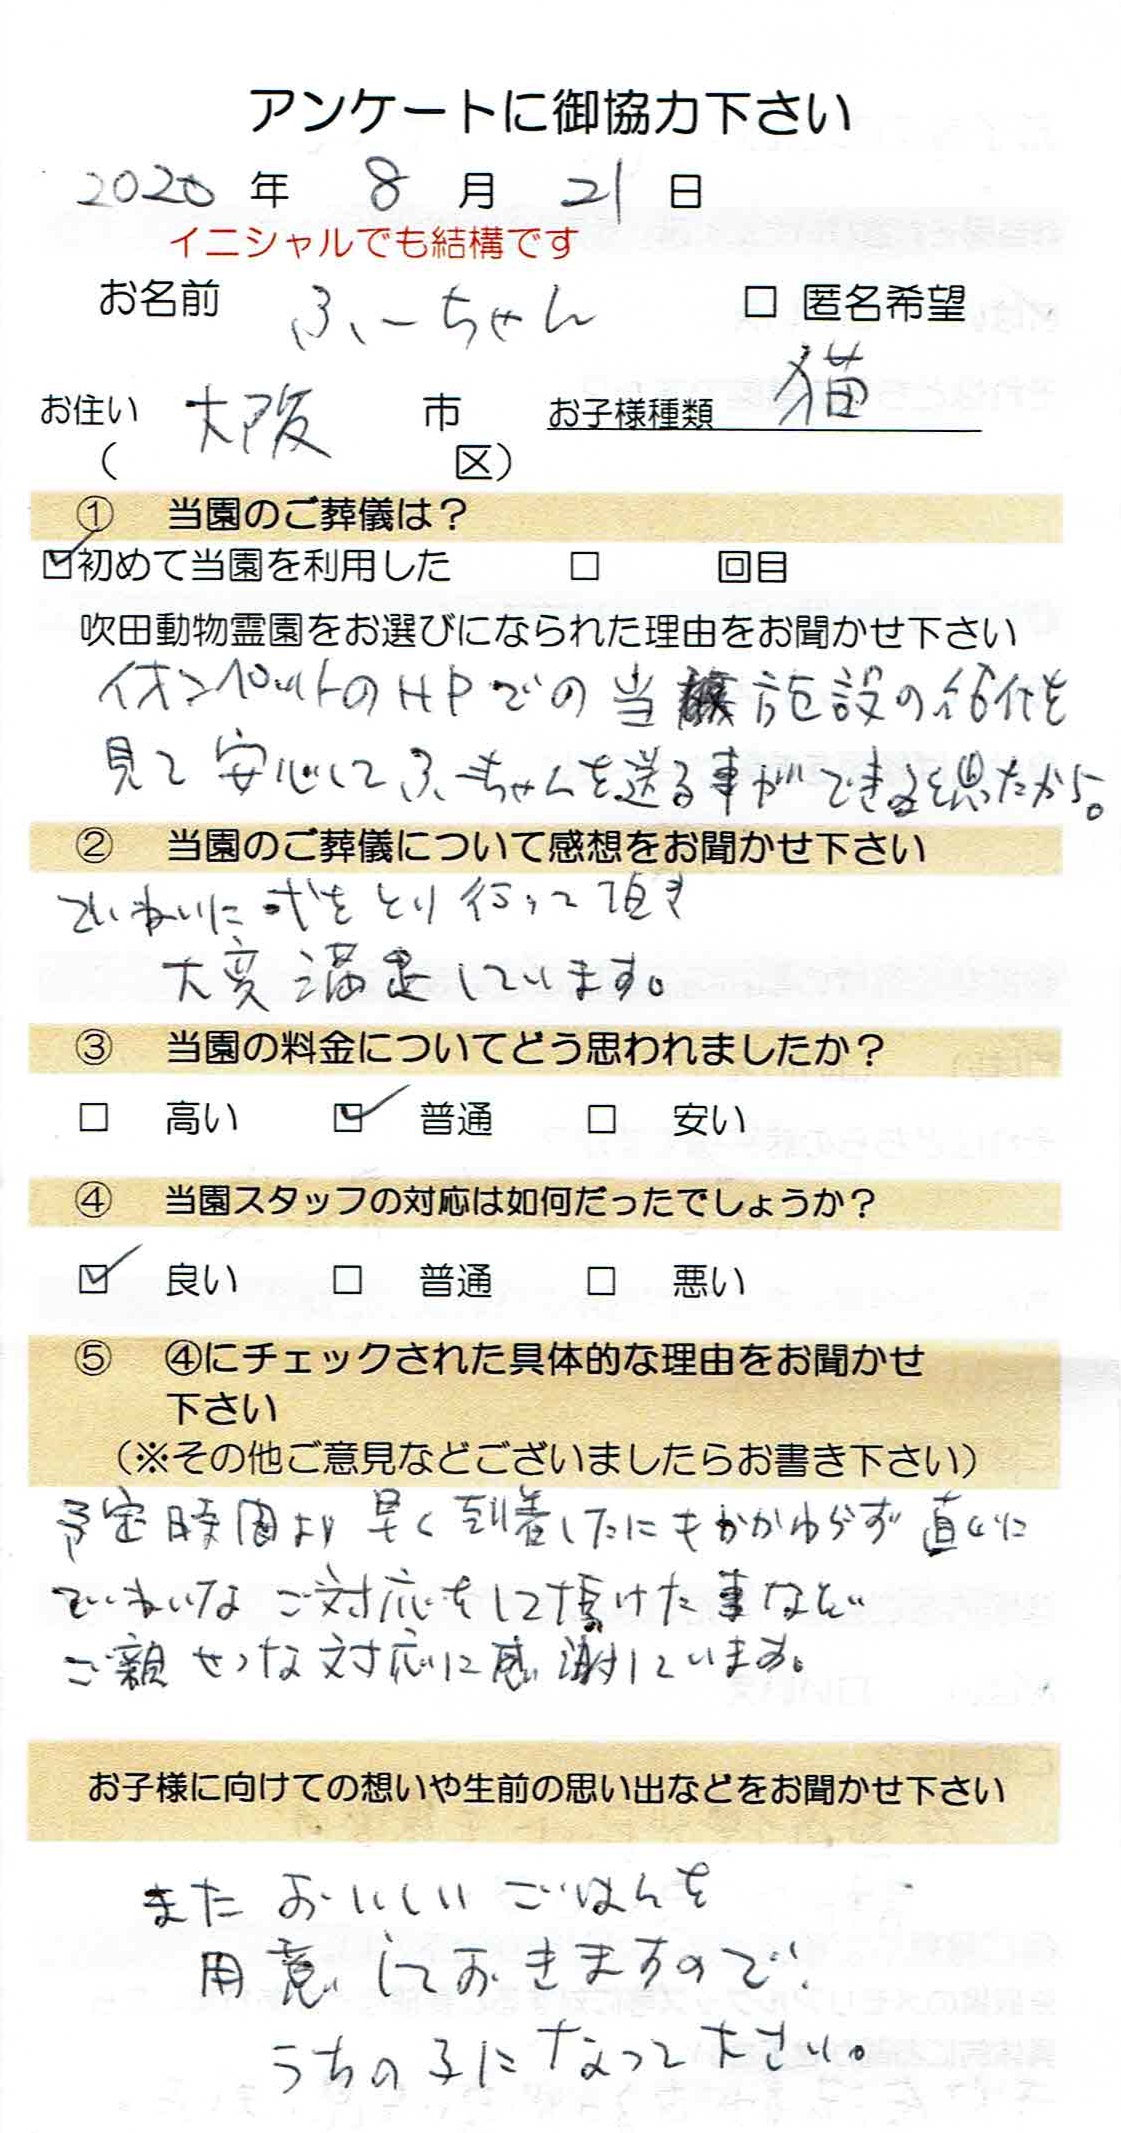 アンケートに御協力下さい
2020 年 8 月 21 日
イニシャルでも結構です
お名前 ふぃーちゃん □ 匿名希望
お住い 大阪 市 お子様種類 猫
( 区)
① 当園のご葬儀は?
☑初めて当園を利用した □ 回目
吹田動物霊園をお選びになられた理由をお聞かせ下さい
イオンペットのHPでの当施設の紹介を
見て安心してふぃーちゃんを送る事ができると思ったから。
② 当園のご葬儀について感想をお聞かせ下さい
ていねいに式をとり行って頂き
大変満足しています。
③ 当園の料金についてどう思われましたか?
□ 高い ☑ 普通 □ 安い
④ 当園スタッフの対応は如何だったでしょうか?
☑ 良い □ 普通 □ 悪い
⑤ ④にチェックされた具体的な理由をお聞かせ
下さい
(※その他ご意見などございましたらお書き下さい)
予定時間より早く到着したにもかかわらず直ぐに
ていねいなご対応をして頂けた事など
ご親せつな対応に感謝しています。
お子様に向けての想いや生前の思い出などをお聞かせ下さい
またおいしいごはんを
用意しておきますので
うちの子になって下さい。